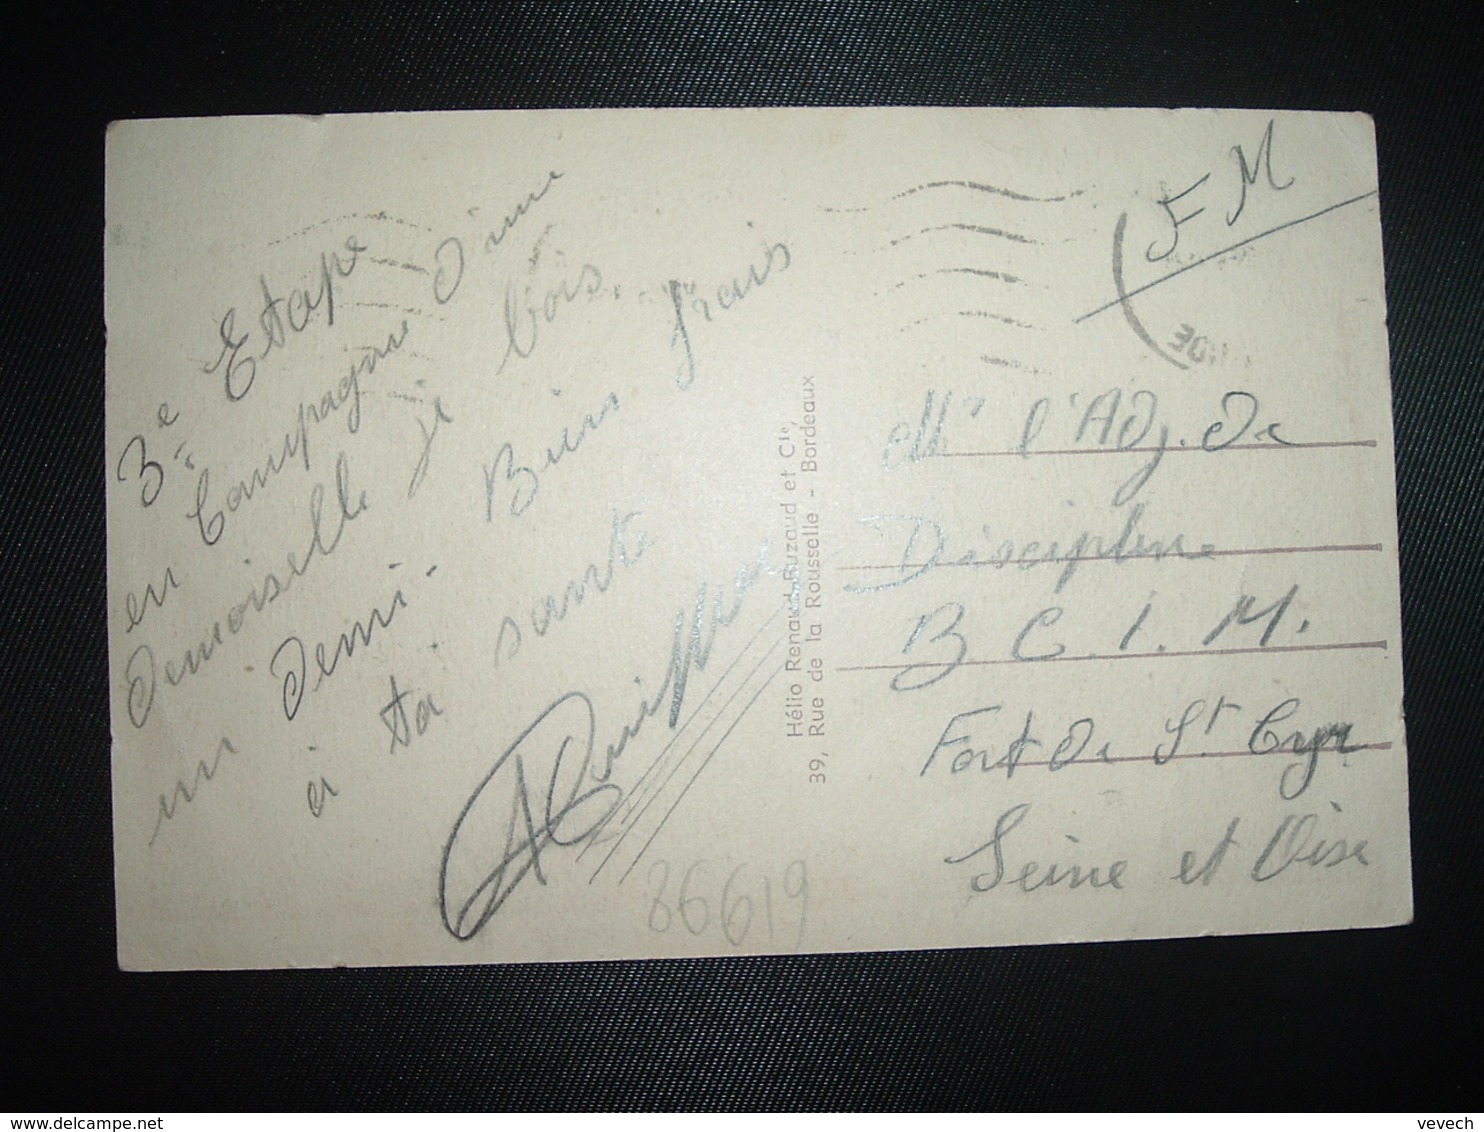 3e Etape
en Compagnie d'une
demoiselle je bois
un demi. Bien frais
à ta santé
86619
Hélio Renaud-Buzaud et Cie,
39, Rue de la Rousselle - Bordeaux
FM
Mr l'Adj. de
Discipline
B C. I. M.
Fort de St Cyr
Seine et Oise
delcampe.net
vevech